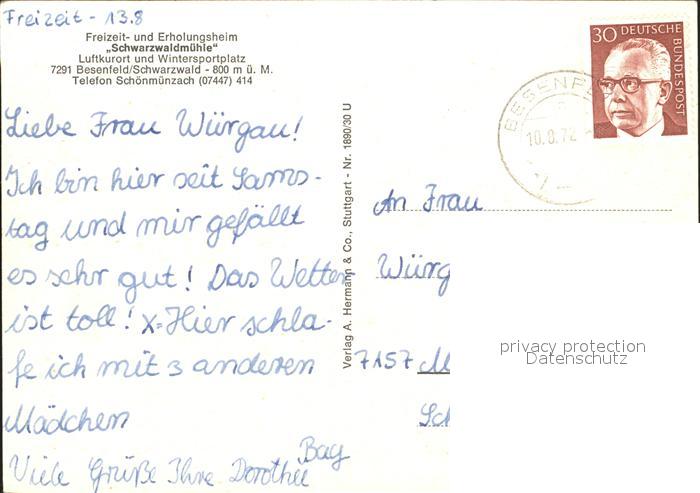 Freizeit - 13.8
Freizeit- und Erholungsheim
„Schwarzwaldmühle"
Luftkurort und Wintersportplatz
7291 Besenfeld/Schwarzwald - 800 m ü. M.
Telefon Schönmünzach (07447) 414
Liebe Frau Würgau!
Ich bin hier seit Sams-
tag und mir gefällt
es sehr gut! Das Wetter
ist toll! X=Hier schla-
fe ich mit 3 anderen
Mädchen
Bay
Viele Grüße Ihre Dorothee
Verlag A. Hermann & Co., Stuttgart - Nr. 1890/30 U
30 DEUTSCHE
BUNDESPOST
BESENFE
10.8.72
An Frau
Würg
7157 M
Sch
privacy protection
Datenschutz